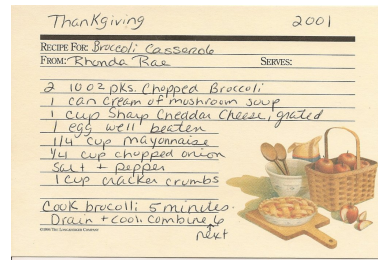 Thanksgiving 2001
RECIPE FOR: Broccoli Casserole
FROM: Rhonda Rae SERVES:
2 10 oz pks. Chopped Broccoli
1 can cream of mushroom soup
1 cup Sharp Cheddar Cheese, grated
1 egg well beaten
1/4 cup mayonnaise
1/4 cup chopped onion
Salt + pepper
1 cup cracker crumbs
Cook brocolli 5 minutes.
Drain + cool. Combine 6
next
©2000 THE LONGABERGER COMPANY